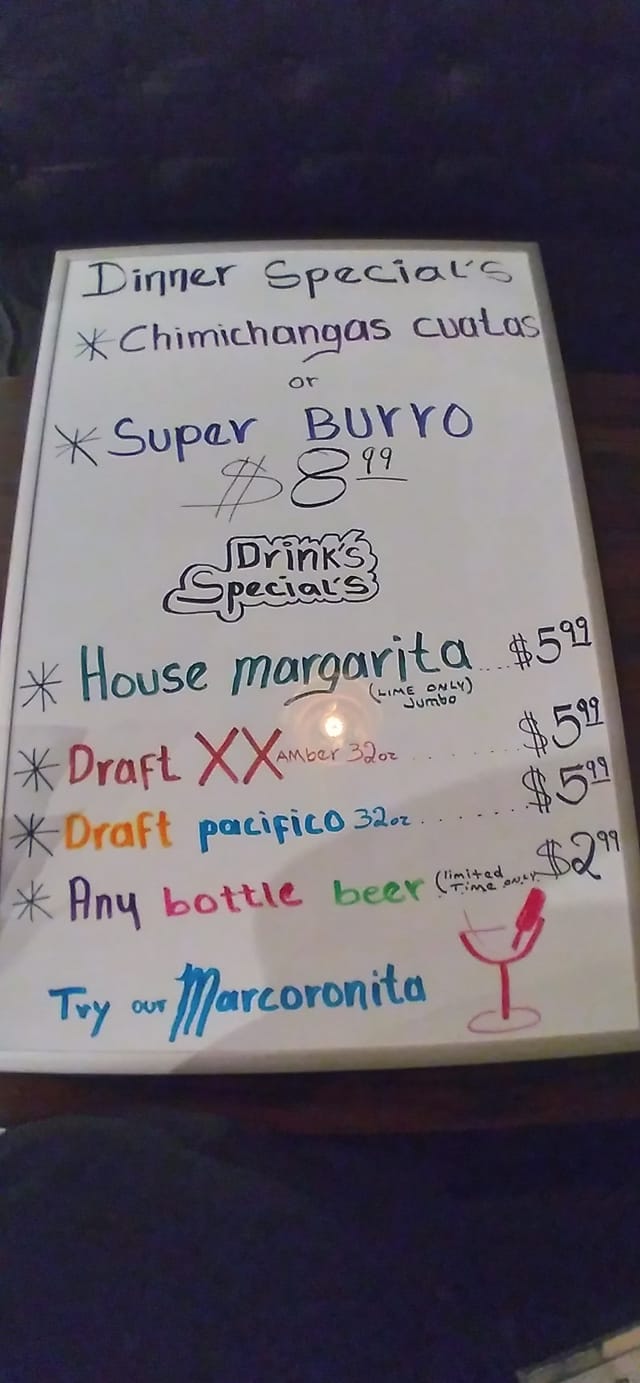 Dinner Special's
* Chimichangas cuatas
or
* Super Burro
$8.99
Drink's
Special's
* House margarita ..... $5.99
(LIME ONLY)
Jumbo
* Draft XX Amber 32oz ........ $5.99
* Draft pacifico 32oz ........ $5.99
* Any bottle beer (limited Time only) $2.99
Try our Marcoronita